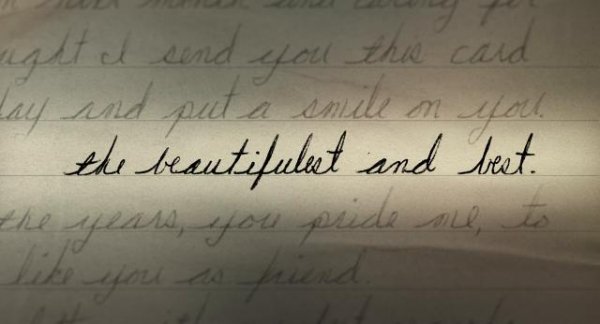 ught I send you this card
day and put a smile on you.
the beautifulest and best.
the years, you pride me, to
like you as friend.